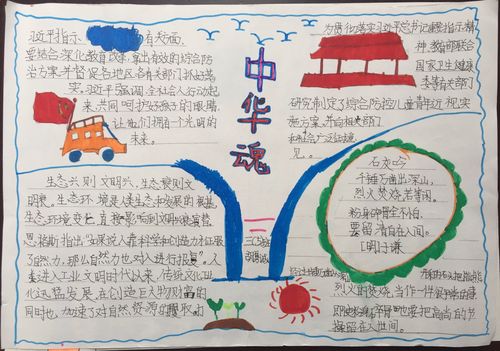 习近平指示
有关方面,
要结合深化教育改革,拿出有效的综合防
治方案,并督促各地区、各有关部门抓好落
实。习近平强调,全社会人行动起
来,共同呵护好孩子的眼睛,
让他们拥有一个光明的
未来。
中华魂
为贯彻落实习近平总书记重要指示精
神,教育部联合
国家卫生健康
委等有关部门
研究制定了综合防控儿童青少年近视实
施方案,并向相关部门
和社会广泛征求意
见。
生态兴则文明兴,生态衰则文
明衰。生态环境是人类生存和发展的根基,
生态环境变化直接影响到文明兴衰
恩格斯指出:“如果说人靠科学和创造力征服
了自然力,那么自然力也对人进行报复”,人
类进入工业文明时代以来,传统工业
化迅猛发展,在创造巨大物质财富的
同时也加速了对自然资源的攫取
三(3)班
石灰吟
千锤万凿出深山,
烈火焚烧若等闲。
粉身碎骨全不怕,
要留清白在人间。
[明]于谦
烈火的焚烧,当作一件很平常的事,
即使粉身碎骨也要把高尚的节
操留在人世间。